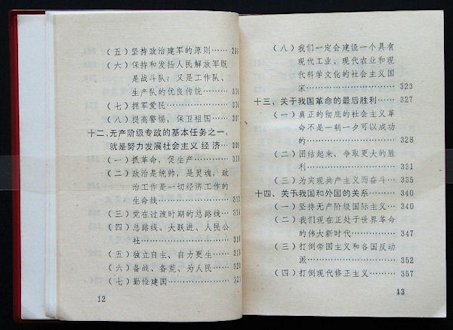 (五)坚持政治建军的原则……
(六)保持和发扬人民解放军既
是战斗队，又是工作队、
生产队的优良传统……
(七)拥军爱民……
(八)提高警惕，保卫祖国……
十二、无产阶级专政的基本任务之一，
就是努力发展社会主义经济……
(一)抓革命，促生产……
(二)政治是统帅，是灵魂，政
治工作是一切经济工作的
生命线……
(三)党在过渡时期的总路线……
(四)总路线、大跃进、人民公
社……
(五)独立自主、自力更生……
(六)备战、备荒、为人民……
(七)勤俭建国……
12
(八)我们一定会建设一个具有
现代工业、现代农业和现
代科学文化的社会主义国
家……323
十三、关于我国革命的最后胜利……327
(一)真正的彻底的社会主义革
命不是一朝一夕可以成功
的……328
(二)团结起来，争取更大的胜
利……331
(三)为实现共产主义而奋斗……335
十四、关于我国和外国的关系……340
(一)坚持无产阶级国际主义……340
(二)我们现在正处于世界革命
的伟大新时代……347
(三)打倒帝国主义和各国反动
派……352
(四)打倒现代修正主义……357
13